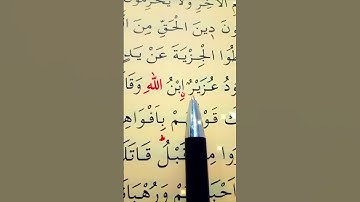 الْاٰخِرِ وَلَا يُحَرِّمُونَ
ونَ دِينَ الْحَقِّ مِنَ
طُوا الْجِزْيَةَ عَنْ يَدٍ
ودُ عُزَيْرٌ ابْنُ اللّٰهِ وَقَا
كَ قَوْلُهُمْ بِاَفْوَاهِ
رُوا مِنْ قَبْلُ قَاتَلَ
اَحْبَا هُمْ وَرُهْبَا